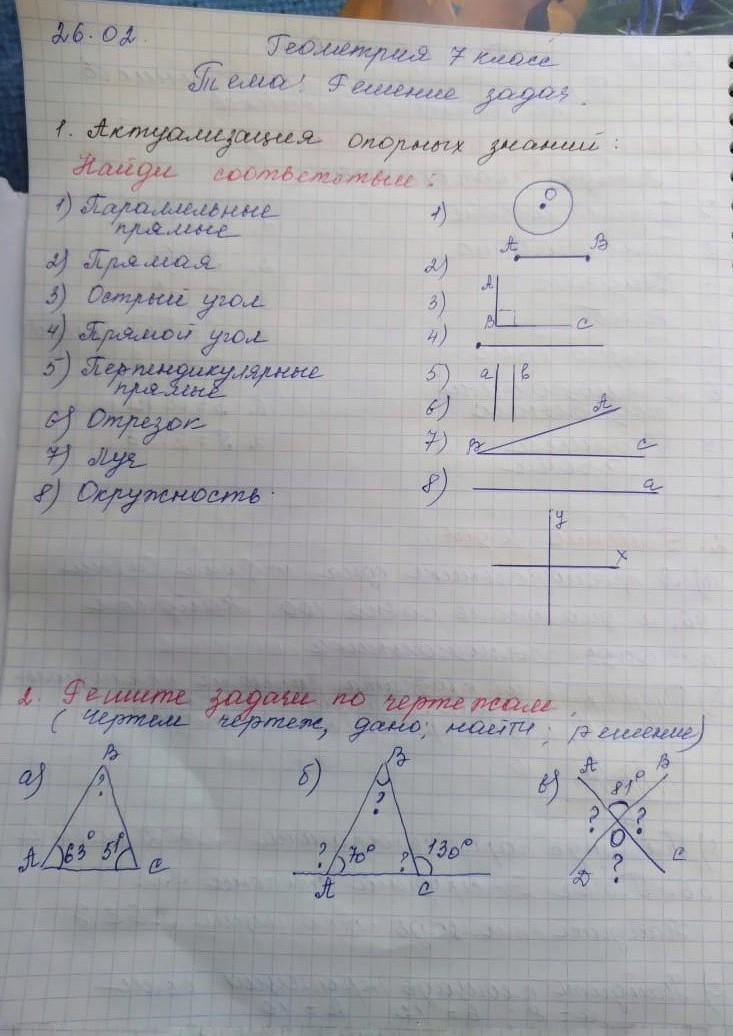 26.02.
Геометрия 7 класс
Тема: Решение задач.
1. Актуализация опорных знаний:
Найди соответствие:
1) Параллельные
прямые
2) Прямая
3) Острый угол
4) Прямой угол
5) Перпендикулярные
прямые
6) Отрезок
7) Луч
8) Окружность.
1) O
A B
2)
A
3)
B C
4)
5) a b
6) A
7) B C
8) a
y
x
2. Решите задачи по чертежам
(чертем чертеж, дано; найти; решение)
а) B
?
A 63° 51° C
б) B
?
? 70° ? 130°
A C
в) A B
81°
? O ?
?
D C